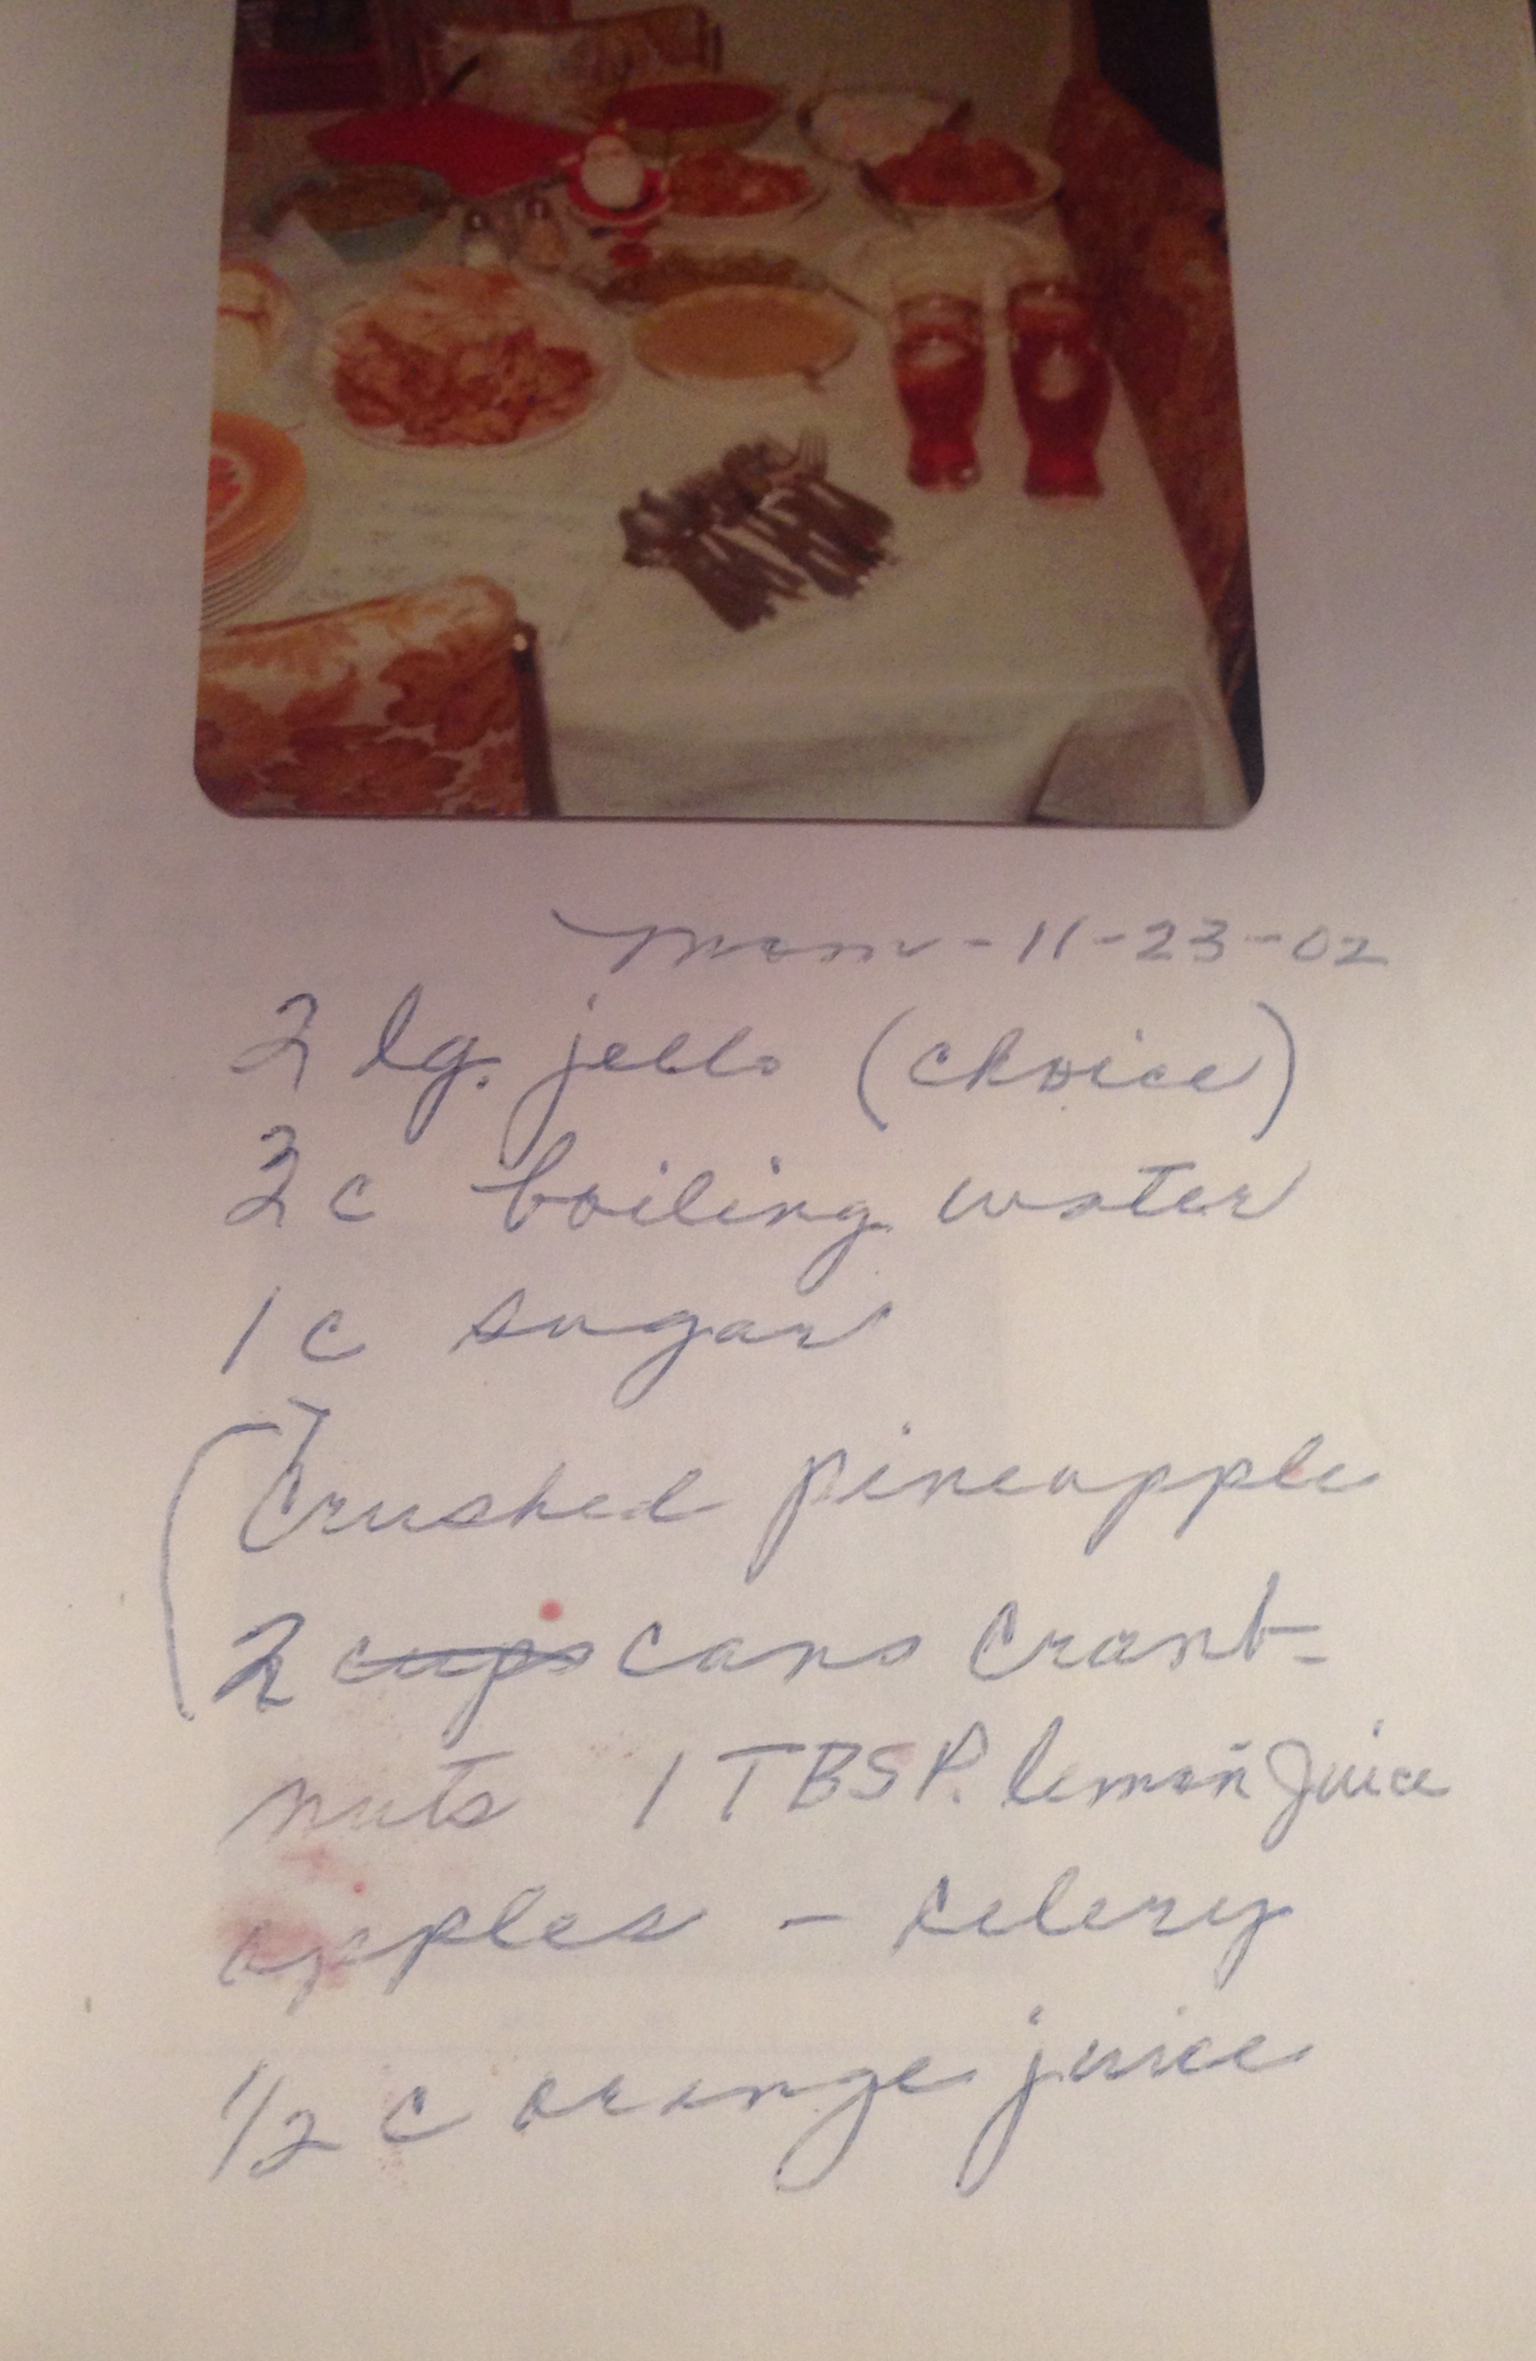 Mom - 11-23-02
2 lg. jello (choice)
c boiling water
1 c sugar
(Crushed pineapple
2 cups cans Cranb-
nuts 1 TBSP. lemon Juice
apples - celery
1/2 c orange juice